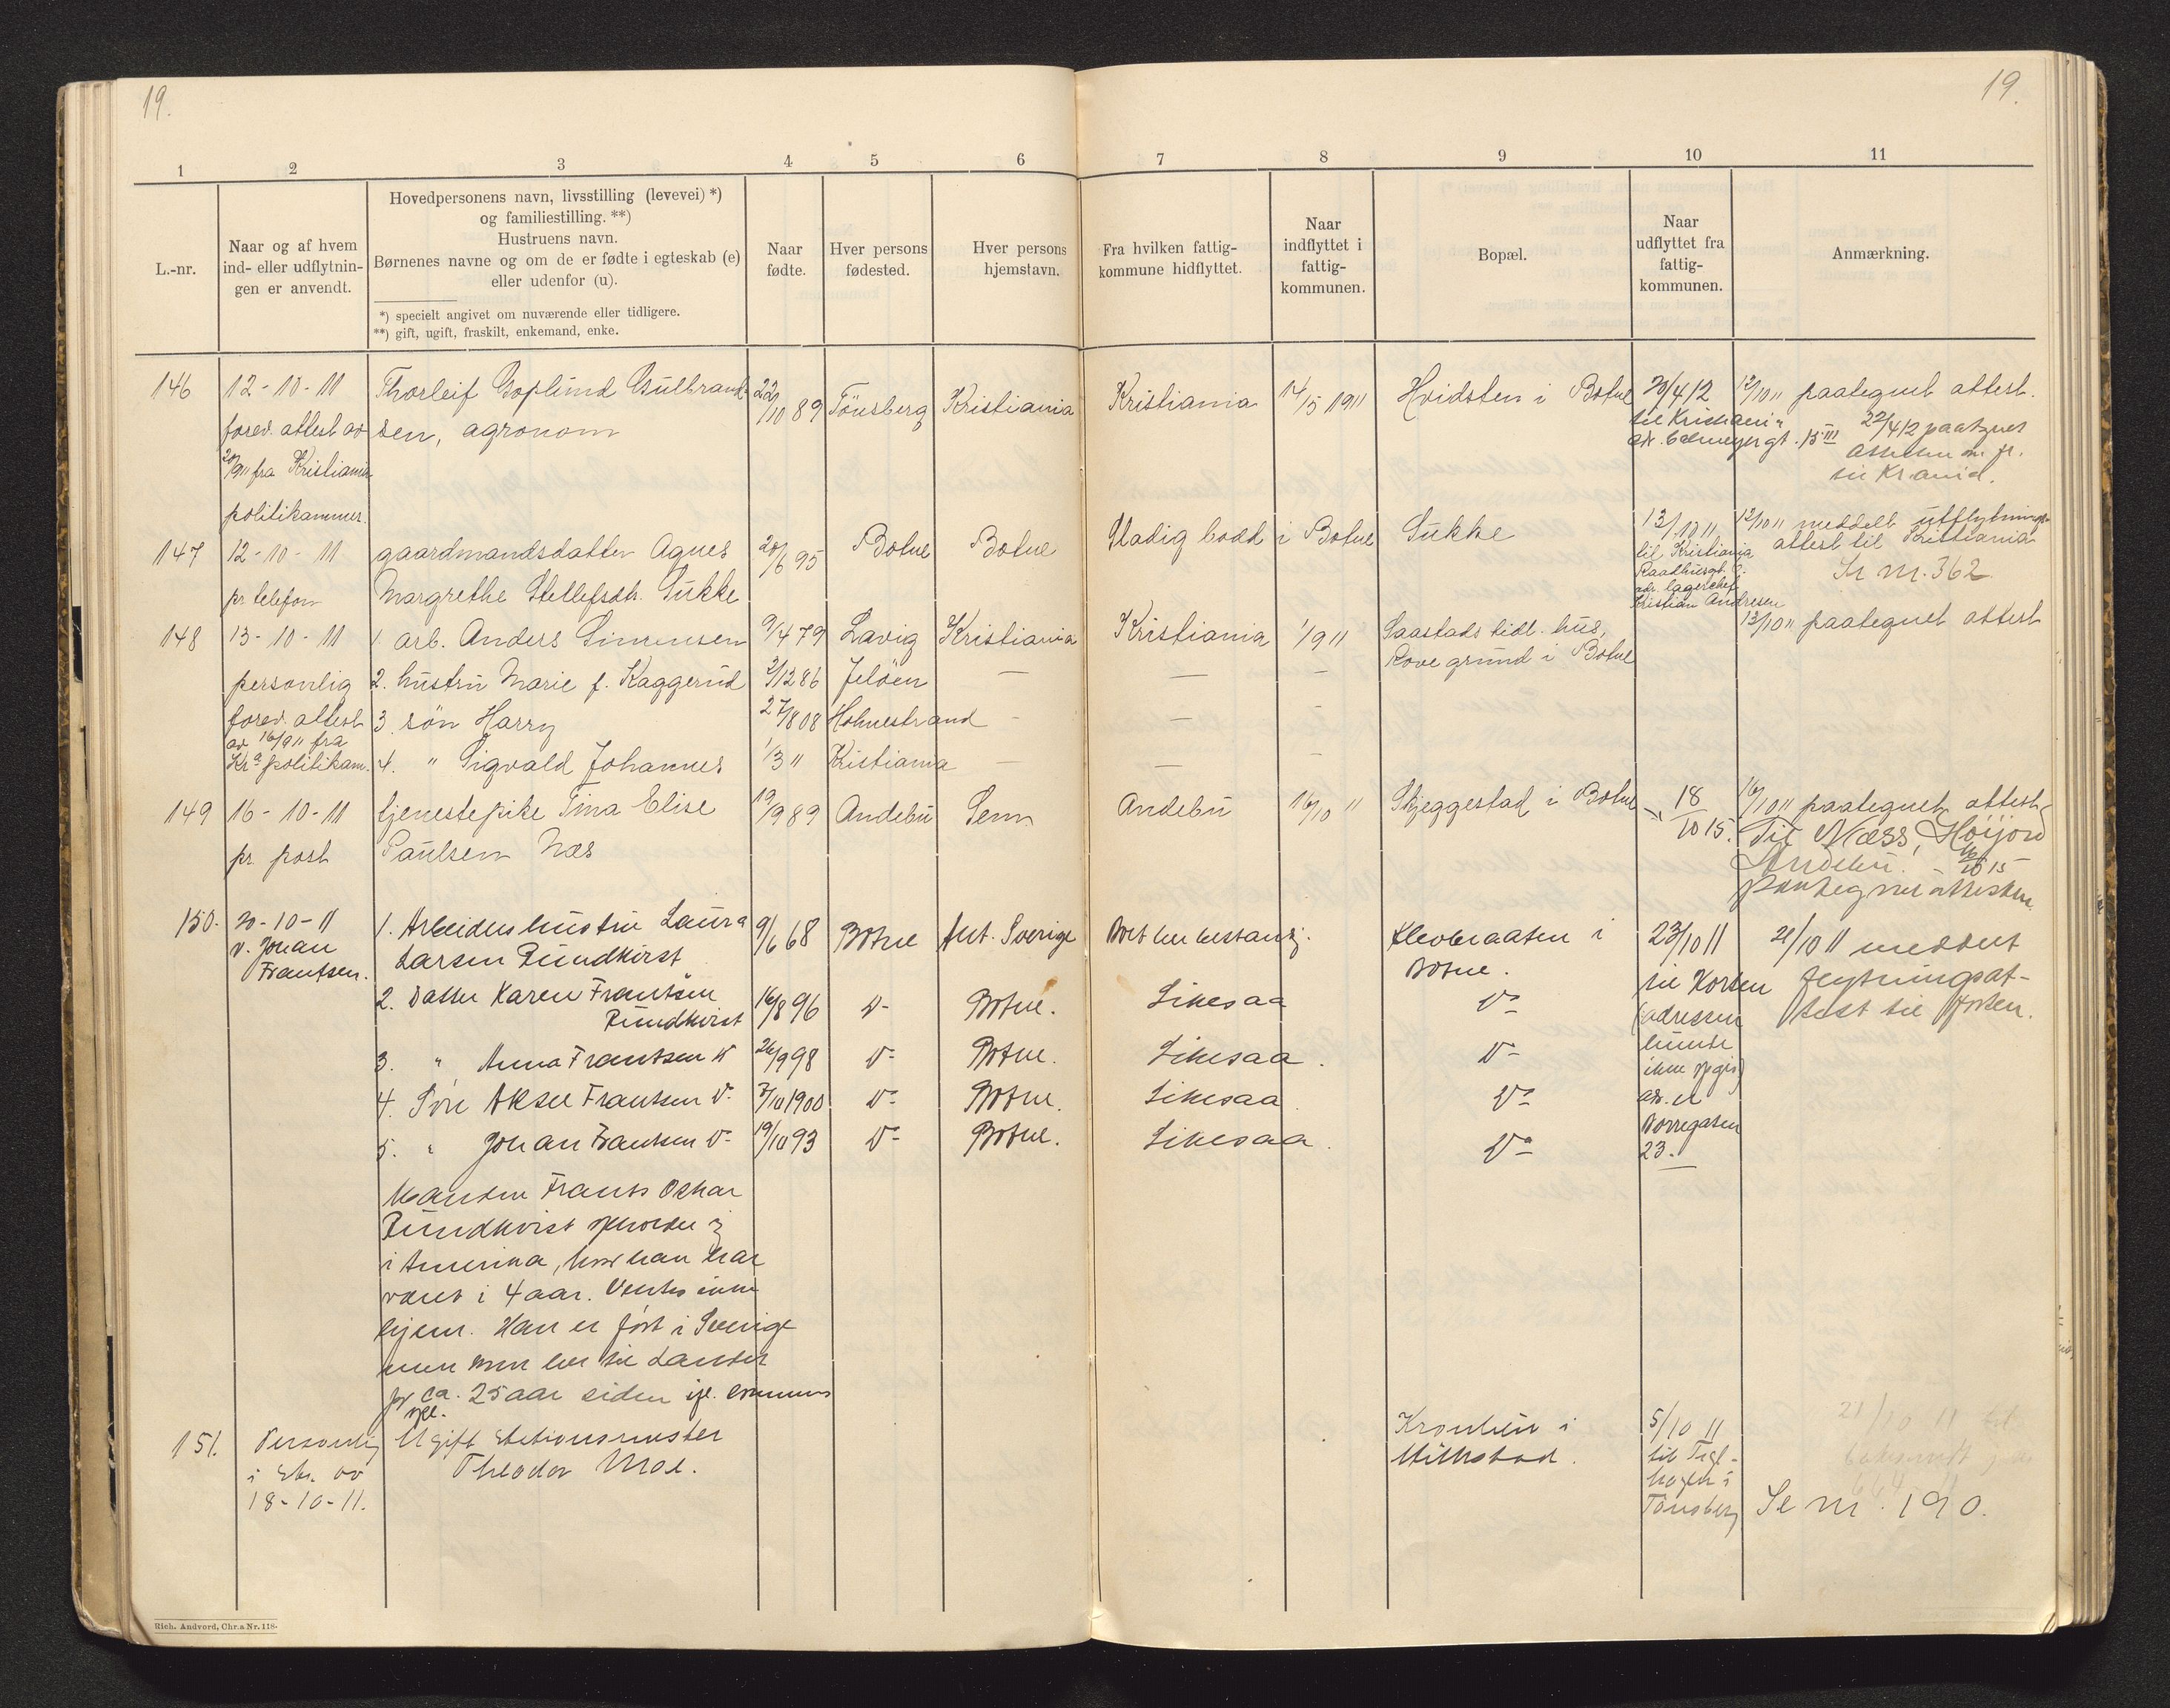 19.
19.
1 2 3 4 5 6 7 8 9 10 11
L.-nr.
Naar og af hvem
ind- eller udflytnin-
gen er anvendt.
Hovedpersonens navn, livsstilling (levevei) *)
og familiestilling. **)
Hustruens navn.
Børnenes navne og om de er fødte i egteskab (e)
eller udenfor (u).
*) specielt angivet om nuværende eller tidligere.
**) gift, ugift, fraskilt, enkemand, enke.
Naar
fødte.
Hver persons
fødested.
Hver persons
hjemstavn.
Fra hvilken fattig-
kommune hidflyttet.
Naar
indflyttet i
fattig-
kommunen.
Bopæl.
Naar
udflyttet fra
fattig-
kommunen.
Anmærkning.
146
12-10-11
forev. attest av
20/9 11 fra Kristiania
politikammer.
Thorleif Goplund Gulbrand-
sen, agronom
22/10 89
Tönsberg
Kristiania
Kristiania
14/5 1911
Hvidsten i Botne
20/4 12
til Kristiania
15 III
12/10 11 paategnet attest.
22/4 12 paategnet
147
12-10-11
pr telefon
gaardmandsdatter Agnes
Margrethe Stellefsdtr. Sukke
20/6 95
Botne
Botne
Stadig bodd i Botne
Sukke
13/10 11
til Kristiania
Raadhusgt.
adr. lagerchef
Kristian Andresen
12/10 11 meddelt utflytnings-
attest til Kristiania
Se nr. 362
148
13-10-11
personlig
forev. attest
av 16/9 11 fra
Kra politikam.
1. arb. Anders Simensen
9/4 79
Lavig
Kristiania
Kristiania
1/9 11
Saastads tidl. hus,
Rove grund i Botne
13/10 11 paategnet attest
2. hustru Marie f. Kaggerud
2/12 86
Jelöen
—
—
—
3. sön Harry
27/8 08
Holmestrand
—
—
—
4. " Sigvald Johannes
1/3 11
Kristiania
—
—
—
149
16-10-11
pr. post
tjenestepike Tina Elise
Paulsen Næs
19/9 89
Andebu
Sem
Andebu
16/10 11
Skjeggestad i Botne
18/10 15.
16/10 11 paategnet attest
Til Næss, Höijord
Andebu.
paategnet attesten.
150.
20-10-11
v. Johan
Frantsen.
1. Arbeiderhustru Laura
Larsen Rundkvist
9/6 68
Botne
Ant. Sverige
Bott her bestandig.
Klevbraaten i
Botne.
23/10 11
til Horten
(adressen
kunde
ikke opgis)
adr. er
Norregaten
23.
21/10 11 meddelt
flytningsat-
test til Horten.
2. Datter Karen Frantsen
Rundkvist
16/8 96
Do
Botne.
Likesaa
Do
3. " Anna Frantsen Do
26/9 98
Do
Botne.
Likesaa.
Do
4. Søn Aksel Frantsen Do
7/10 1900
Do
Botne.
Likesaa.
Do
5. " Johan Frantsen Do
19/10 93
Do
Botne.
Likesaa.
Do
Manden Frants Oskar
Rundkvist opholder sig
i Amerika, hvor han har
været i 4 aar. Ventes ikke
hjem. Han er født i Sverige
men kom her til Landet
for ca. 25 aar siden
151.
Personlig
i Skr. av
18-10-11.
Ugift Stationsmester
Theodor Moe.
Kronlien i
Hillestad.
5/10 11
til Tegl-
hagen i
Tönsberg
21/10 11
Se nr. 190.
Rich. Andvord, Chr.a Nr. 118.